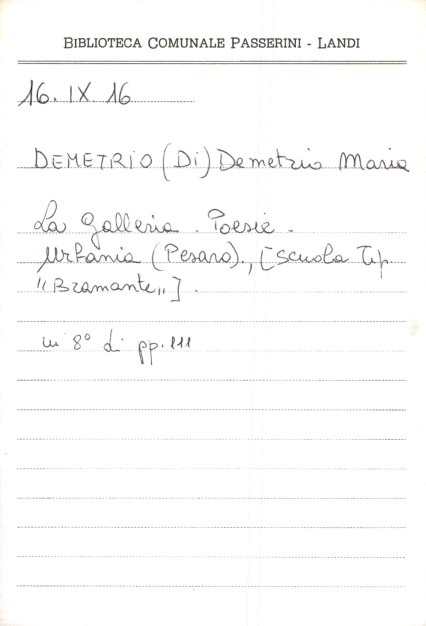 BIBLIOTECA COMUNALE PASSERINI - LANDI
16. IX. 16
DEMETRIO (Di) Demetrio Maria
La Galleria. Poesie.
Urbania (Pesaro)., [Scuola Tip.
"Bramante„].
in 8° di pp. 111